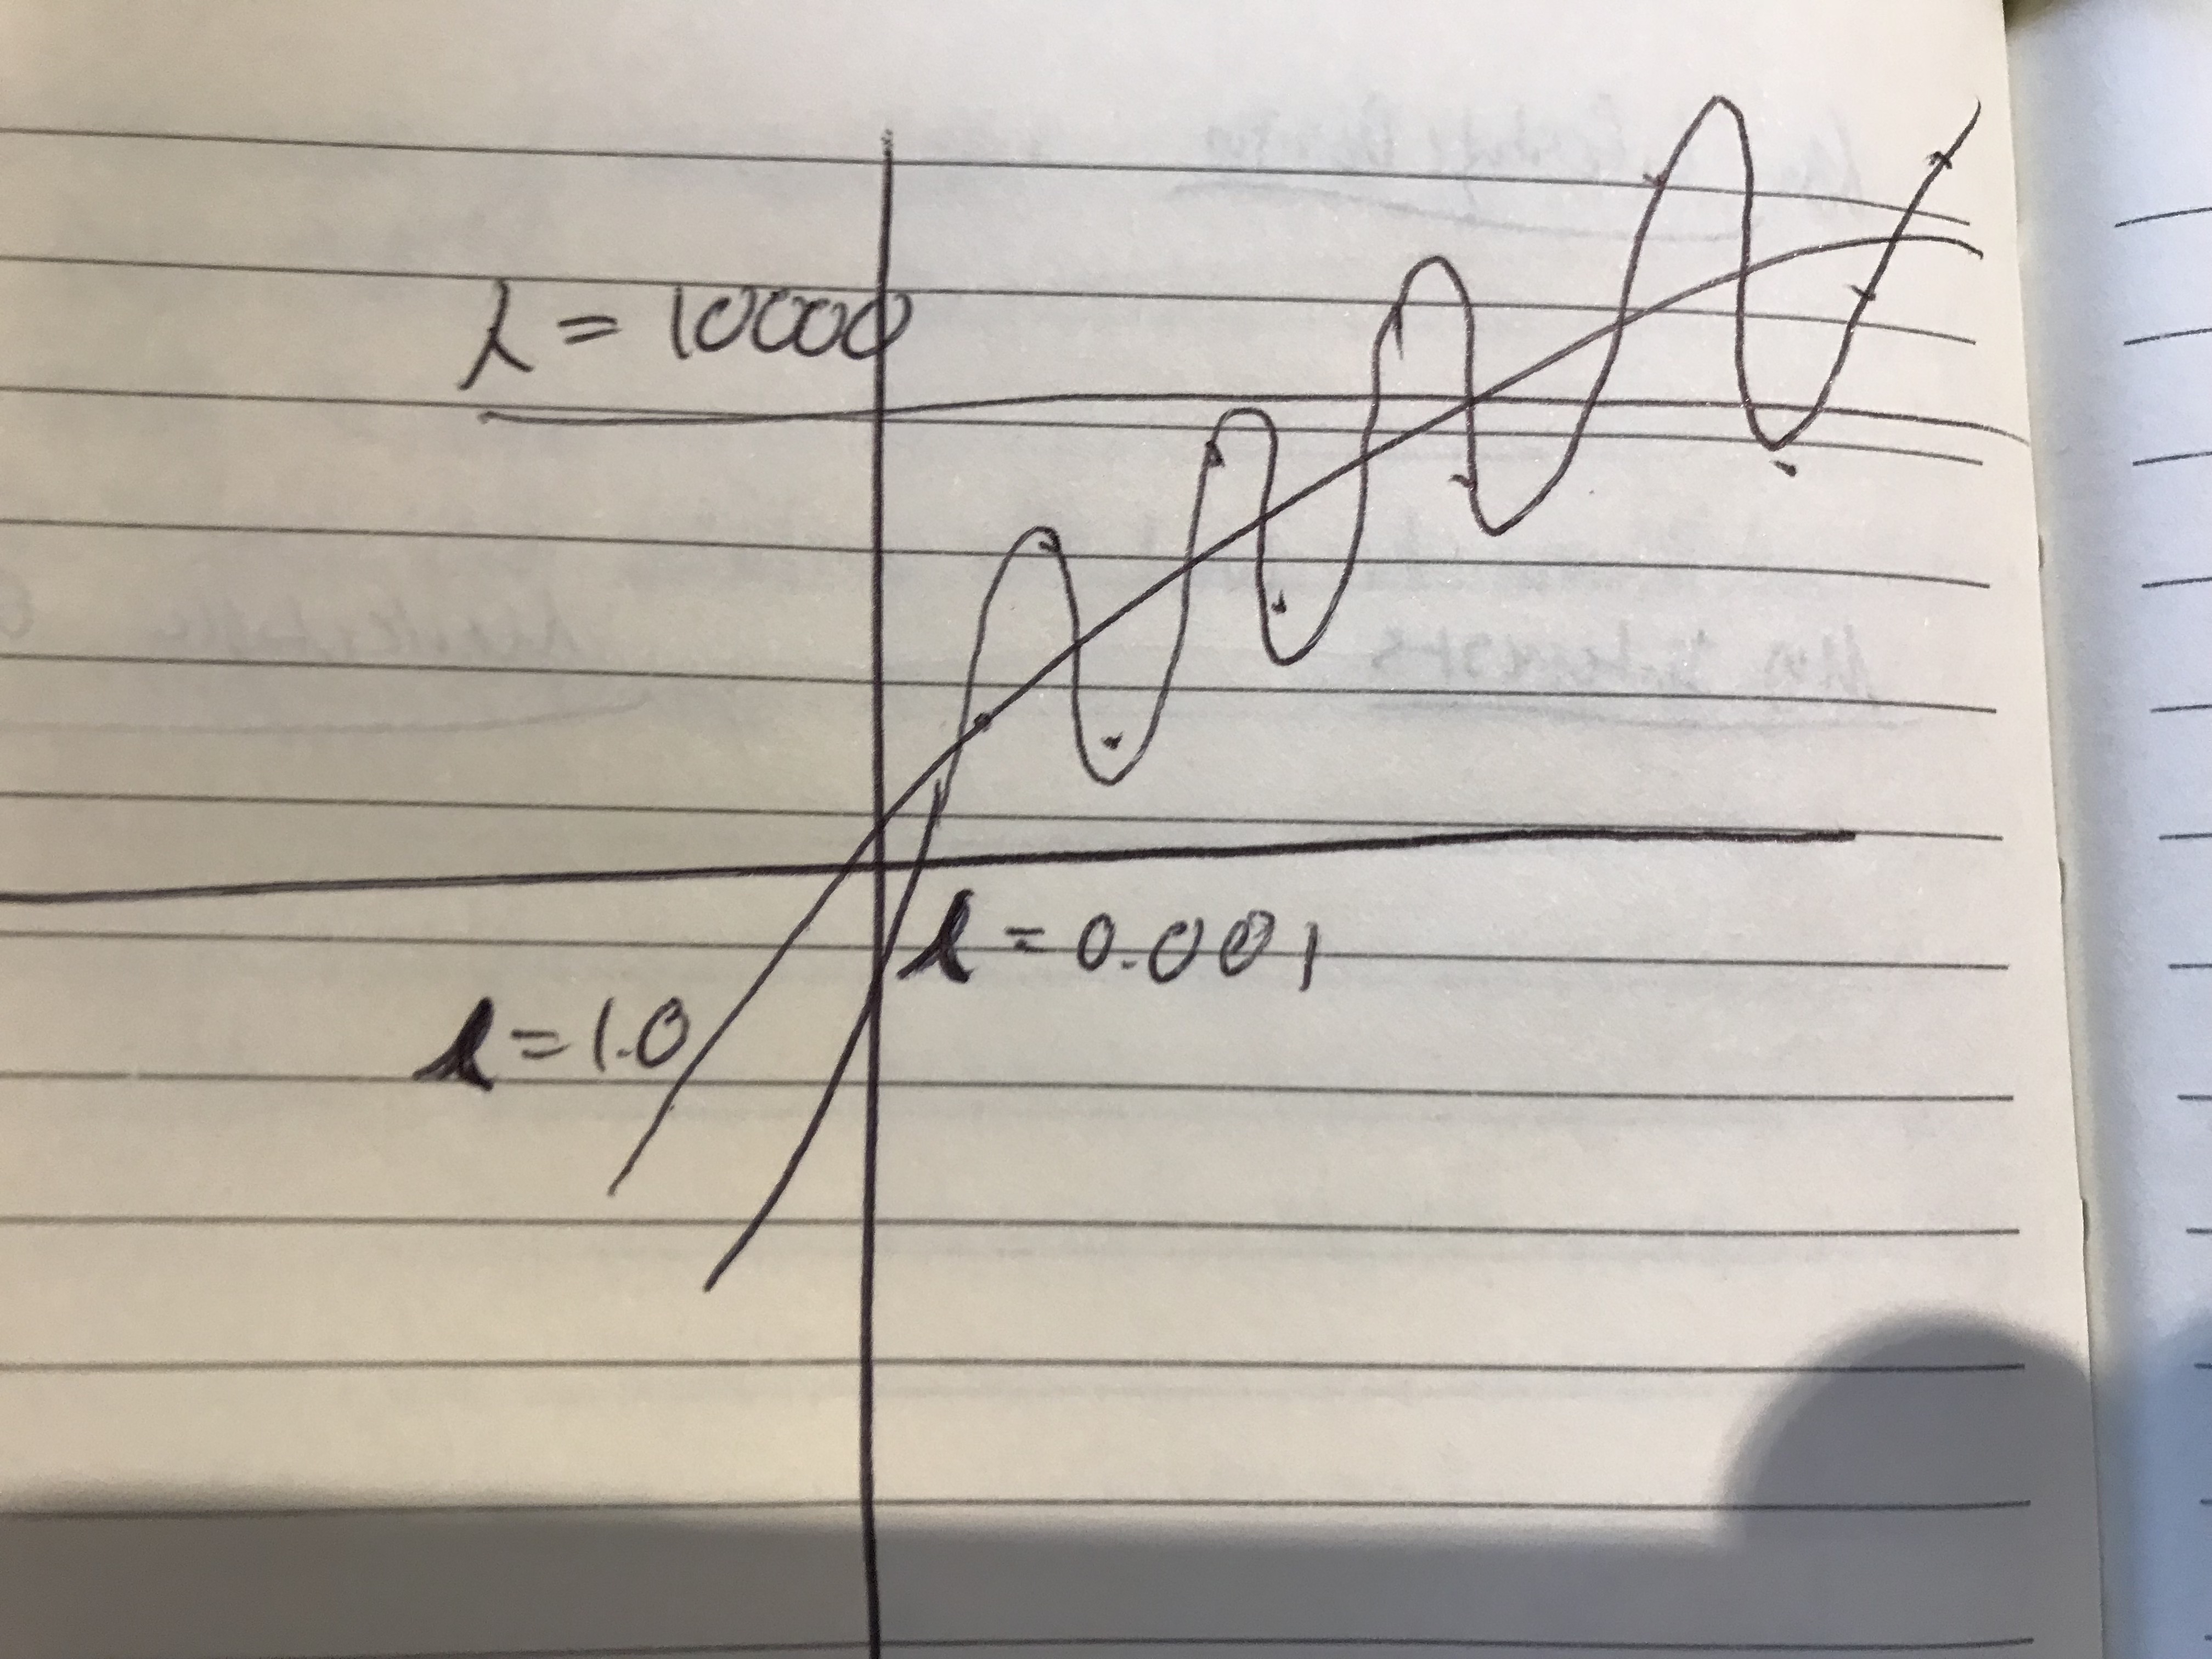 λ = 10000
λ = 0.001
λ = 1.0